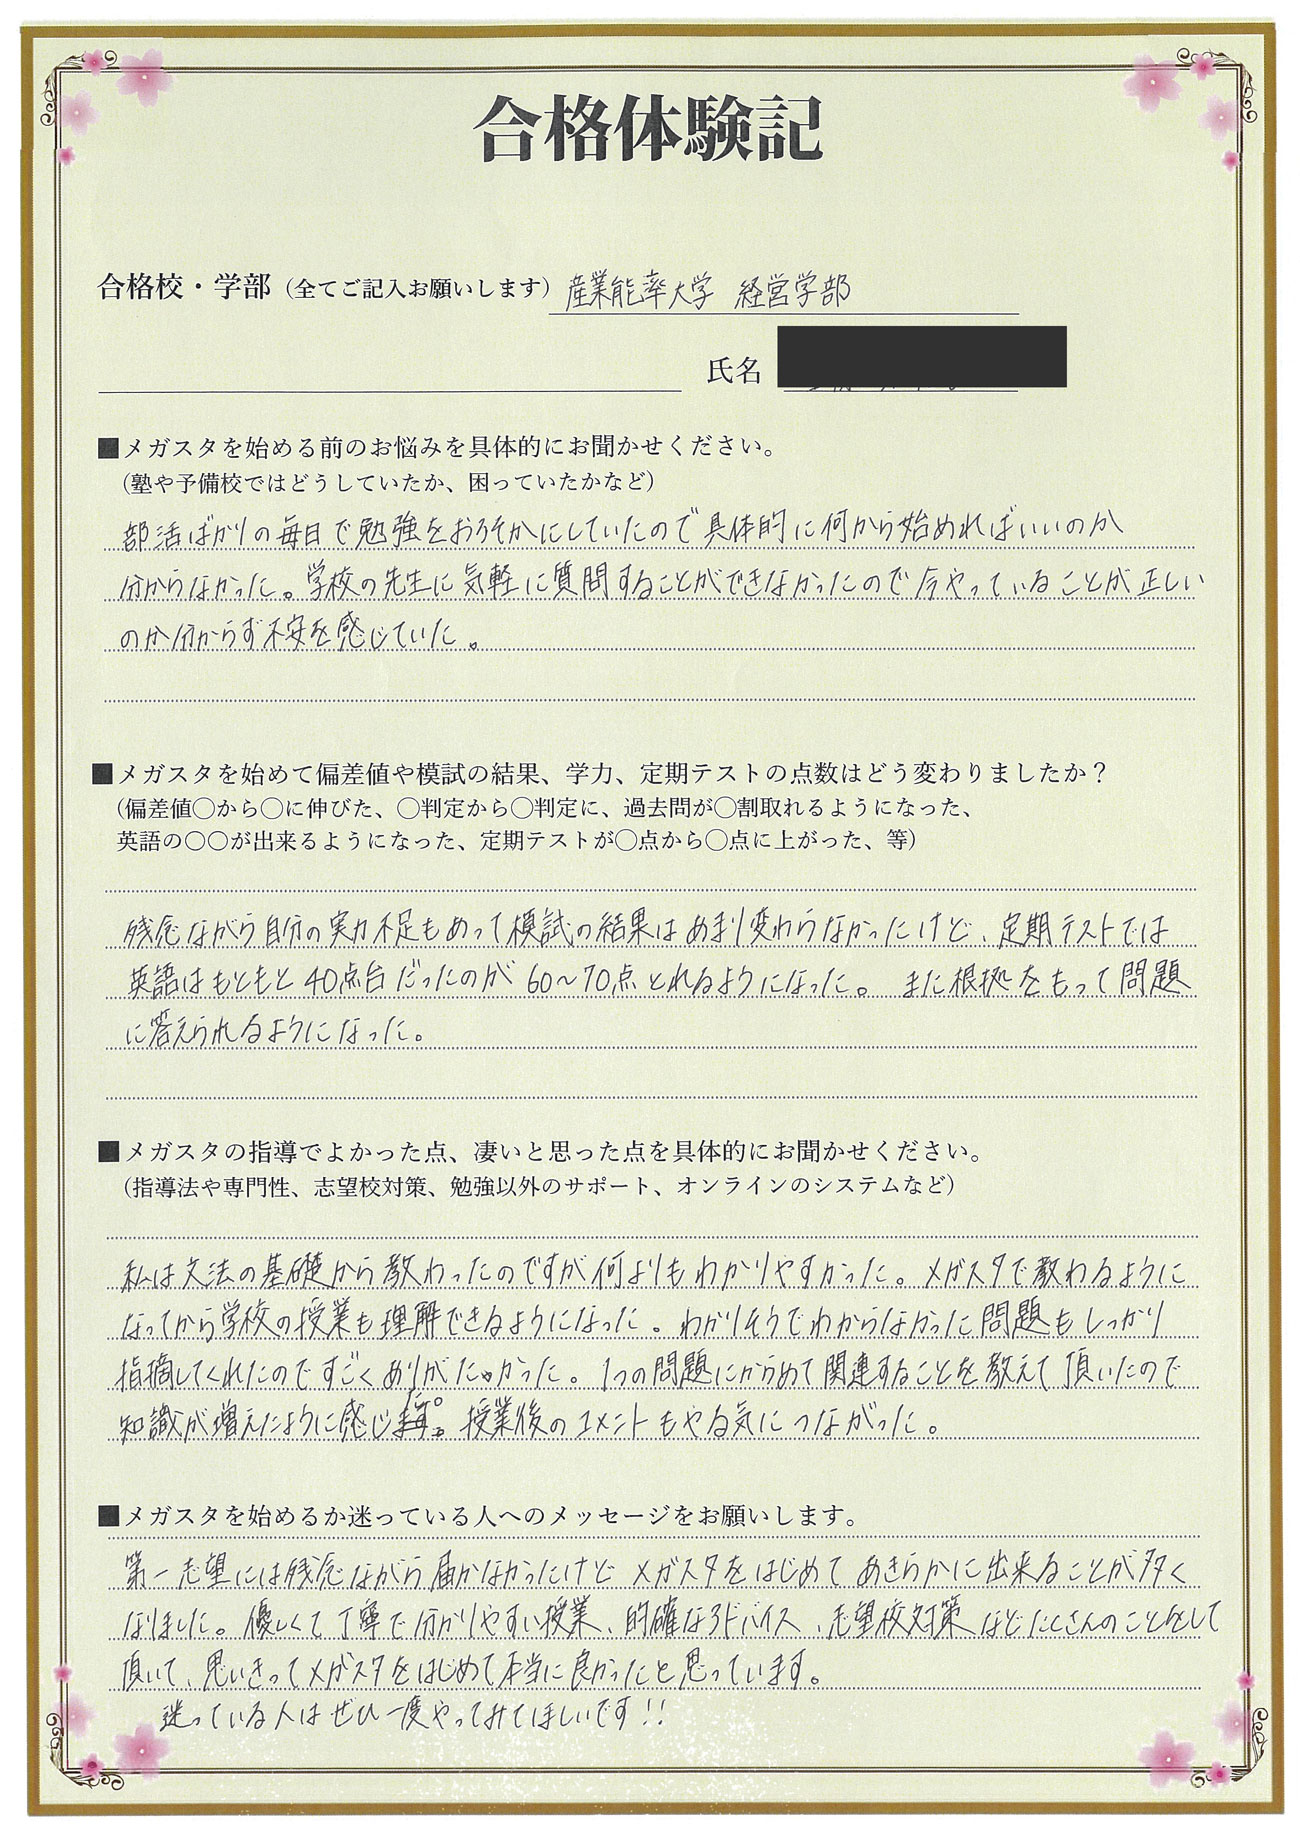 合格体験記
合格校・学部（全てご記入お願いします）産業能率大学 経営学部
氏名
■メガスタを始める前のお悩みを具体的にお聞かせください。
（塾や予備校ではどうしていたか、困っていたかなど）
部活ばかりの毎日で勉強をおろそかにしていたので具体的に何から始めればいいのか
分からなかった。学校の先生に気軽に質問することができなかったので今やっていることが正しい
のか分からず不安を感じていた。
■メガスタを始めて偏差値や模試の結果、学力、定期テストの点数はどう変わりましたか？
（偏差値〇から〇に伸びた、〇判定から〇判定に、過去問が〇割取れるようになった、
英語の〇〇が出来るようになった、定期テストが〇点から〇点に上がった、等）
残念ながら自分の実力不足もあって模試の結果はあまり変わらなかったけど、定期テストでは
英語はもともと40点台だったのが60～70点とれるようになった。また根拠をもって問題
に答えられるようになった。
■メガスタの指導でよかった点、凄いと思った点を具体的にお聞かせください。
（指導法や専門性、志望校対策、勉強以外のサポート、オンラインのシステムなど）
私は文法の基礎から教わったのですが何よりもわかりやすかった。メガスタで教わるように
なってから学校の授業も理解できるようになった。わかりそうでわからなかった問題もしっかり
指摘してくれたのですごくありがたかった。1つの問題にからめて関連することを教えて頂いたので
知識が増えたように感じます。授業後のコメントもやる気につながった。
■メガスタを始めるか迷っている人へのメッセージをお願いします。
第一志望には残念ながら届かなかったけどメガスタをはじめてあきらかに出来ることが多く
なりました。優しくて丁寧で分かりやすい授業、的確なアドバイス、志望校対策などたくさんのことをして
頂いて、思いきってメガスタをはじめて本当に良かったと思っています。
迷っている人はぜひ一度やってみてほしいです!!